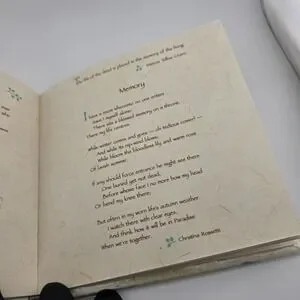 The life of the dead is placed in the memory of the living.
Marcus Tullius Cicero
Memory
I have a room whereinto no one enters
Save I myself alone:
There sits a blessed memory on a throne,
There my life centres.
While winter comes and goes — oh tedious comer! —
And while its nip-wind blows;
While bloom the bloodless lily and warm rose
Of lavish summer.
If any should force entrance he might see there
One buried yet not dead,
Before whose face I no more bow my head
Or bend my knee there;
But often in my worn life's autumn weather
I watch there with clear eyes,
And think how it will be in Paradise
When we're together.
Christina Rossetti